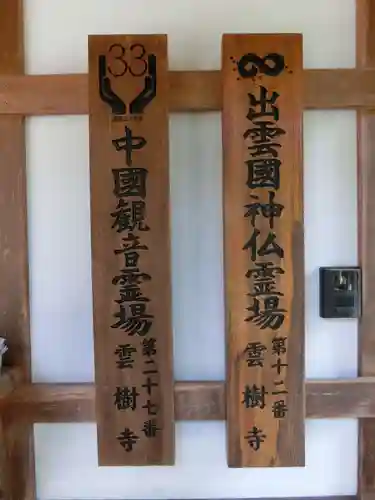 出雲國神仏霊場
第十二番
雲樹寺
33
中國観音霊場
第二十七番
雲樹寺